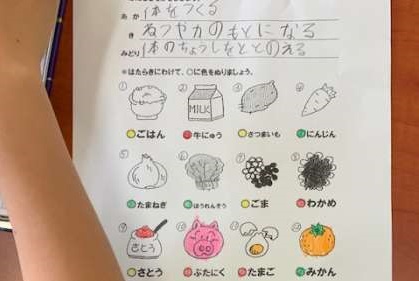 あか 体をつくる
き ねつやカのもとになる
みどり 体のちょうしをととのえる
※はたらきにわけて、○に色をぬりましょう。
① ② ③ ④
MILK
ごはん 牛にゅう さつまいも にんじん
⑤ ⑥ ⑦ ⑧
たまねぎ ほうれんそう ごま わかめ
⑨ ⑩ ⑪ ⑫
さとう
さとう ぶたにく たまご みかん